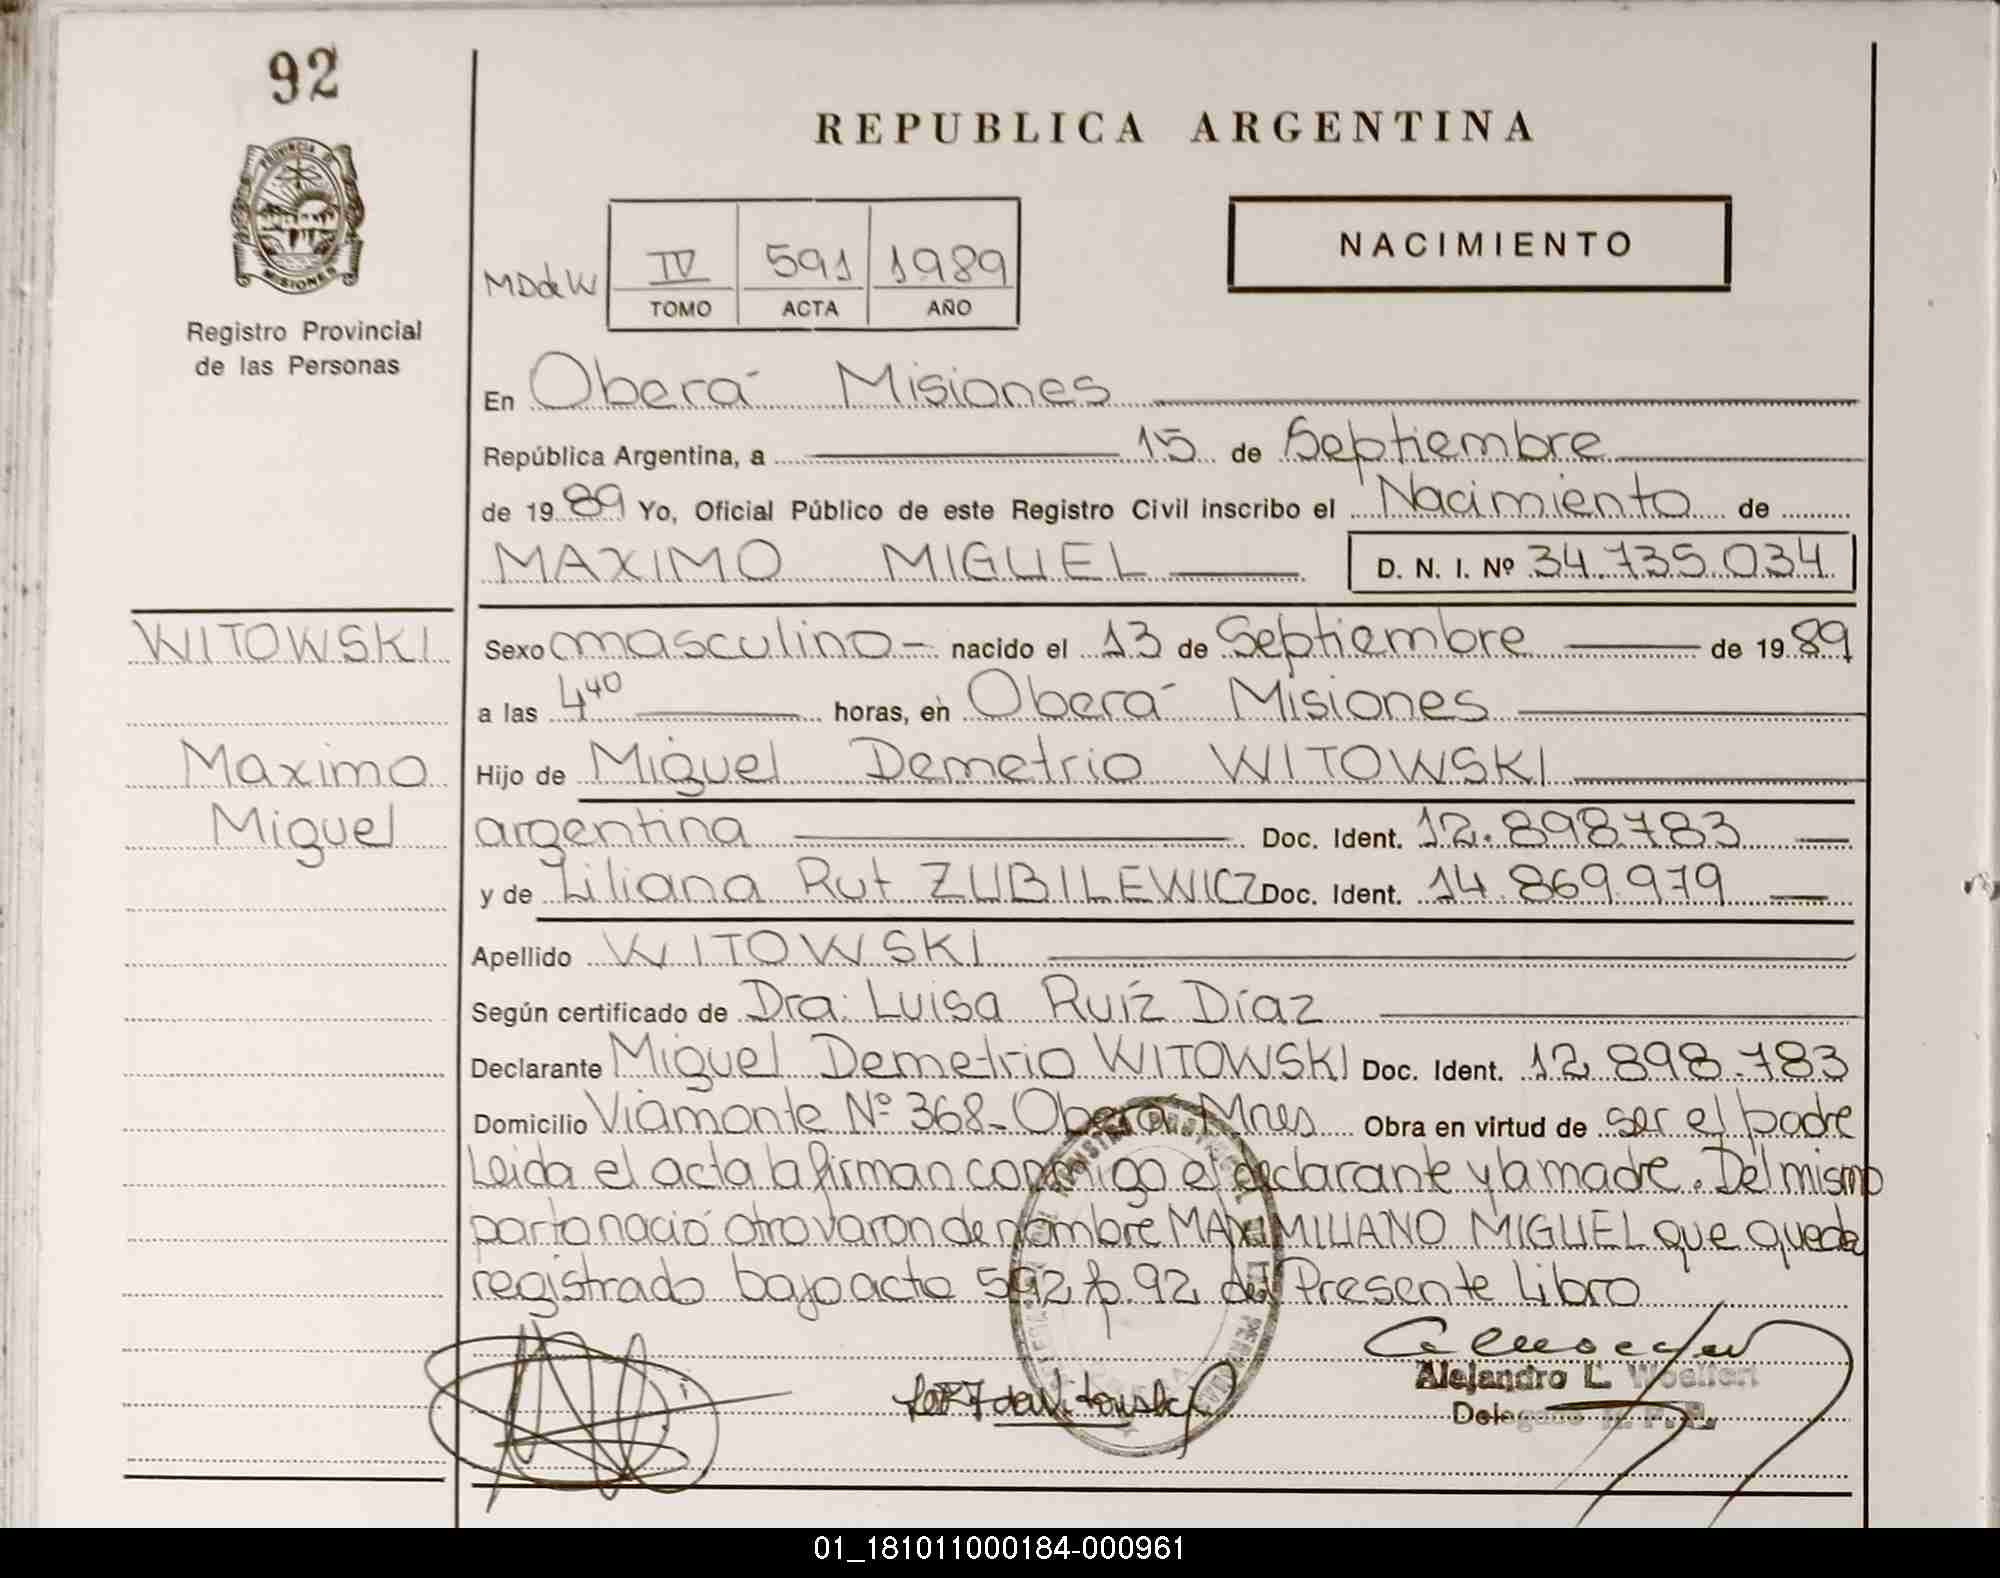 92
PROVINCIA DE
MISIONES
Registro Provincial
de las Personas
REPUBLICA ARGENTINA
NACIMIENTO
MDdeW IV 591 1989
TOMO ACTA AÑO
En Oberá Misiones
República Argentina, a 15 de Septiembre
de 1989 Yo, Oficial Público de este Registro Civil inscribo el Nacimiento de
MAXIMO MIGUEL D. N. I. Nº 34.735.034
WITOWSKI
Maximo
Miguel
Sexo masculino - nacido el 13 de Septiembre de 1989
a las 4 40 horas, en Oberá Misiones
Hijo de Miguel Demetrio WITOWSKI
argentina Doc. Ident. 12.898.783
y de Liliana Rut ZUBILEWICZ Doc. Ident. 14.869.979
Apellido WITOWSKI
Según certificado de Dra. Luisa Ruíz Díaz
Declarante Miguel Demetrio WITOWSKI Doc. Ident. 12.898.783
Domicilio Viamonte Nº 368- Oberá Mnes Obra en virtud de ser el padre
Leida el acta la firman conmigo el declarante y la madre. Del mismo
parto nació otro varon de nombre MAXIMILIANO MIGUEL que queda
registrado bajo acta 592 fº. 92 del Presente Libro
Alejandro L. Woelfert
Delegado R. P. P.
01_181011000184-000961